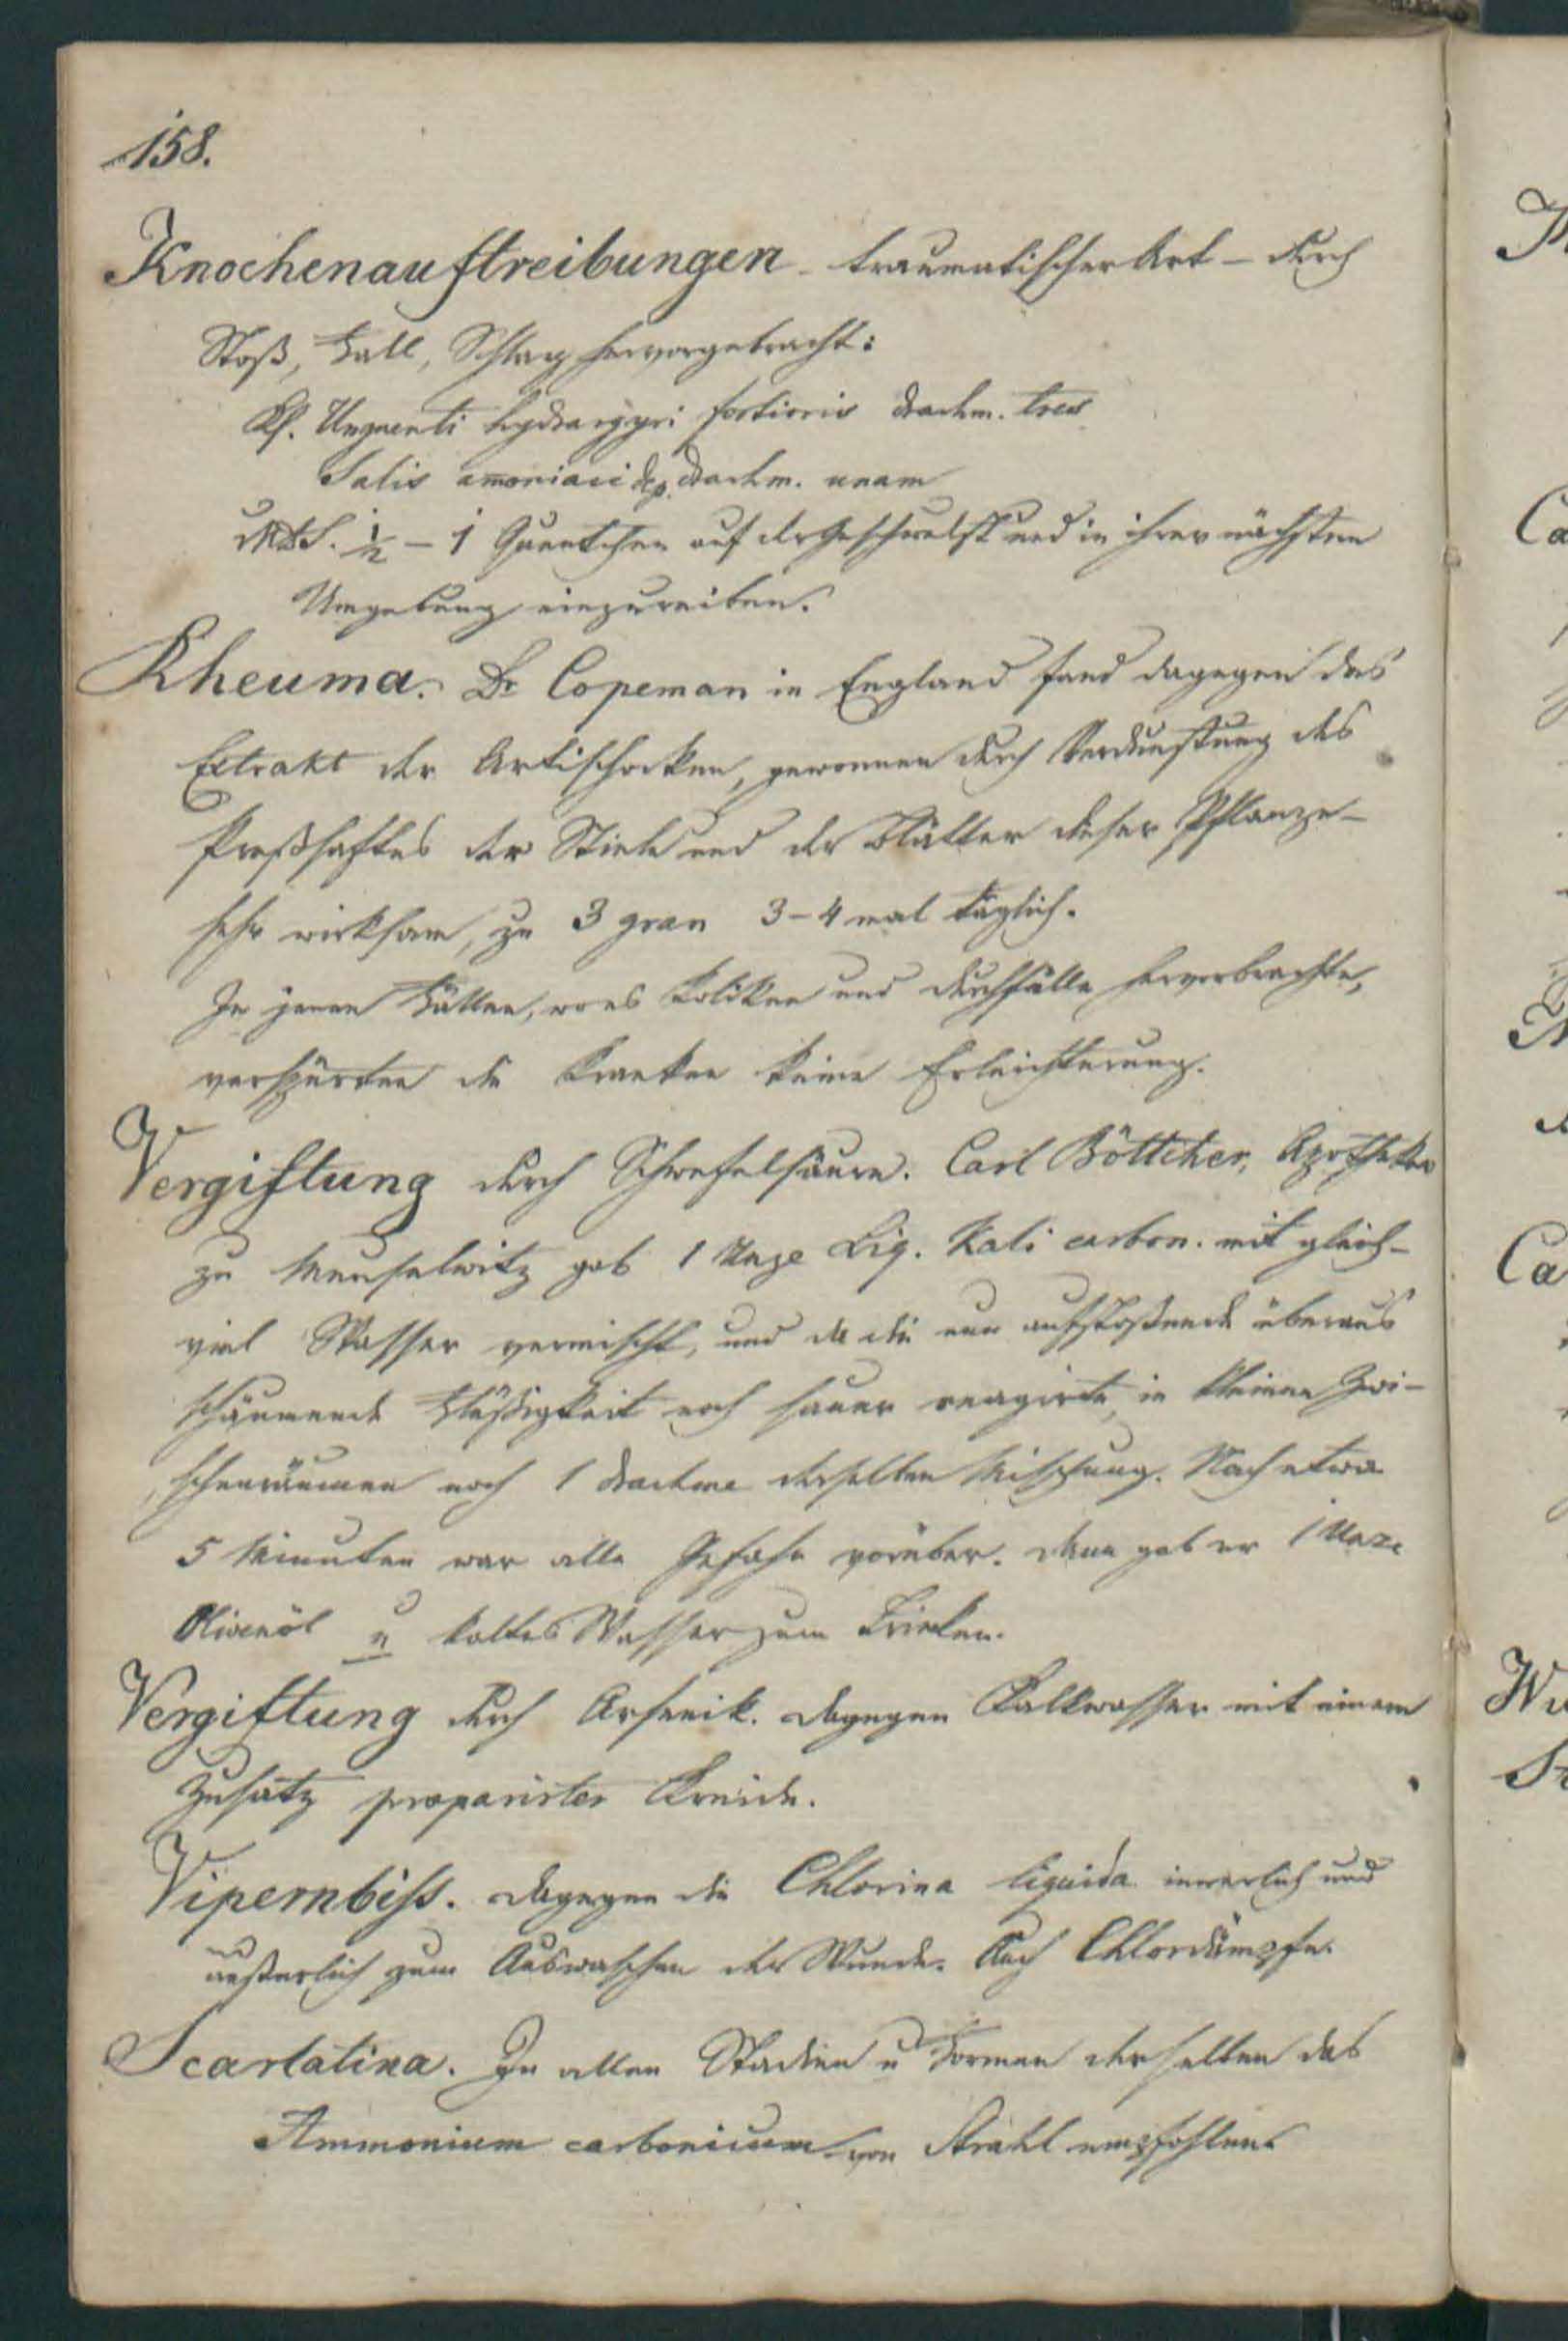 158.
Knochenauftreibungen - traumatischer Art - durch
Stoß, Fall, Schlag hervorgebracht:
Rp. Unguenti hydrargyri fortioris drachm. tres
Salis amoniaci dep. drachm. unam
MDS. ½ - 1 Quentchen auf der Geschwulst und in ihrer nächsten
Umgebung einzureiben.
Rheuma. Dr Copeman in England fand dagegen das
Extrakt der Artischocken, gewonnen durch Verdunstung des
Preßsaftes der Stiele und der Blätter dieser Pflanze -
sehr wirksam, zu 3 gran 3-4 mal täglich.
In jenen Fällen, wo es Koliken und Durchfälle hervorbrachte,
verspürten die Kranken keine Erleichterung.
Vergiftung durch Schwefelsäure. Carl Böttcher, Apotheker
zu Meuselwitz gab 1 Unze Liq. Kali carbon. mit gleich-
viel Wasser vermischt, und da die nun aufstoßende überaus
schäumende Flüßigkeit noch sauer reagirte, in kleinen Zwi-
schenräumen noch 1 Drachme derselben Mischung. Nach etwa
5 Minuten war alle Gefahr vorüber. Dann gab er 1 Unze
Olivenöl u kaltes Wasser zum Trinken.
Vergiftung durch Arsenik. Dagegen Kalkwasser mit einem
Zusatz präparirter Kreide.
Vipernbiss. Dagegen die Chlorina liquida innerlich und
äußerlich zum Auswaschen der Wunde. Auch Chlordämpfe.
Scarlatina. In allen Stadien u Formen derselben das
Ammonium carbonicum von Strahl empfohlen.
Ca
Ca